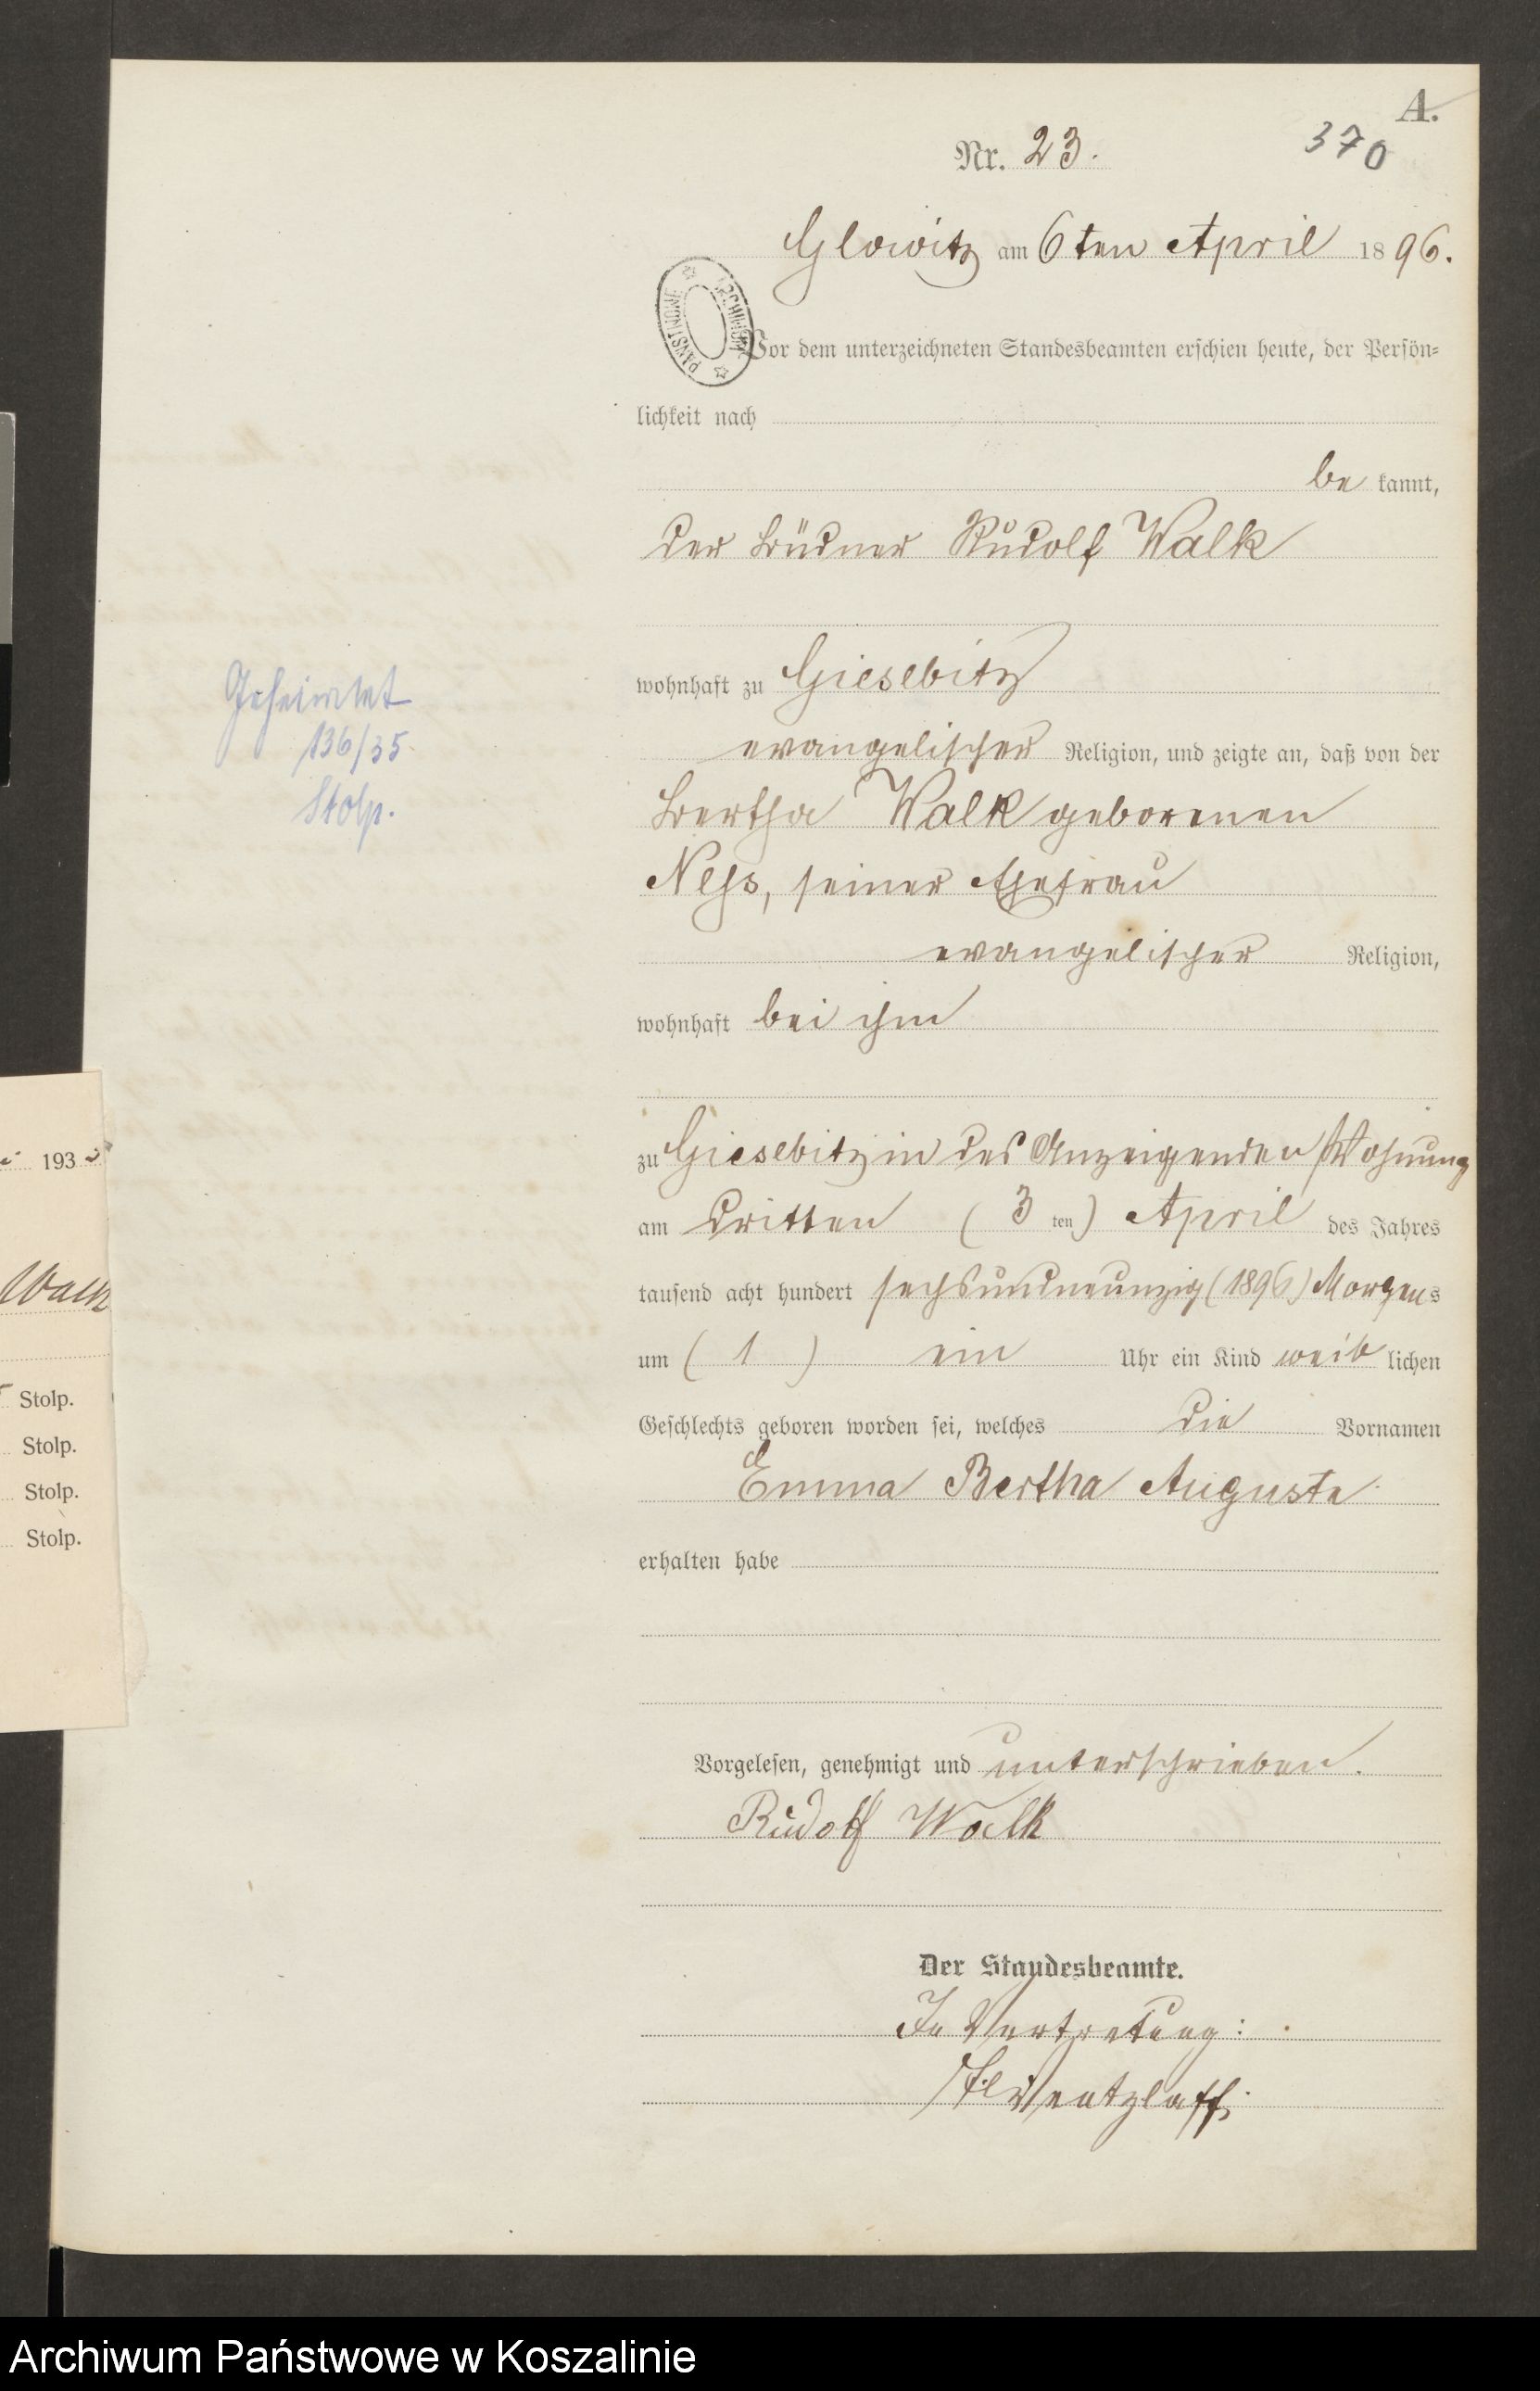 A.
370
Nr. 23.
Glowitz am 6ten April 1896.
ARCHIWUM PAŃSTWOWE
Vor dem unterzeichneten Standesbeamten erschien heute, der Persön-
lichkeit nach
be kannt,
der Büdner Rudolf Walk
wohnhaft zu Giesebitz
evangelischer Religion, und zeigte an, daß von der
Bertha Walk geborenen
Ness, seiner Ehefrau
evangelischer Religion,
wohnhaft bei ihm
zu Giesebitz in des Anzeigenden Wohnung
am dritten (3 ten) April des Jahres
tausend acht hundert sechsundneunzig (1896) Morgens
um (1) ein Uhr ein Kind weib lichen
Geschlechts geboren worden sei, welches die Vornamen
Emma Bertha Auguste
erhalten habe
Vorgelesen, genehmigt und unterschrieben.
Rudolf Walk
Der Standesbeamte.
In Vertretung:
Wentzlaff.
Geheiratet
136/35
Stolp.
1935
Walk
Stolp.
Stolp.
Stolp.
Stolp.
Archiwum Państwowe w Koszalinie